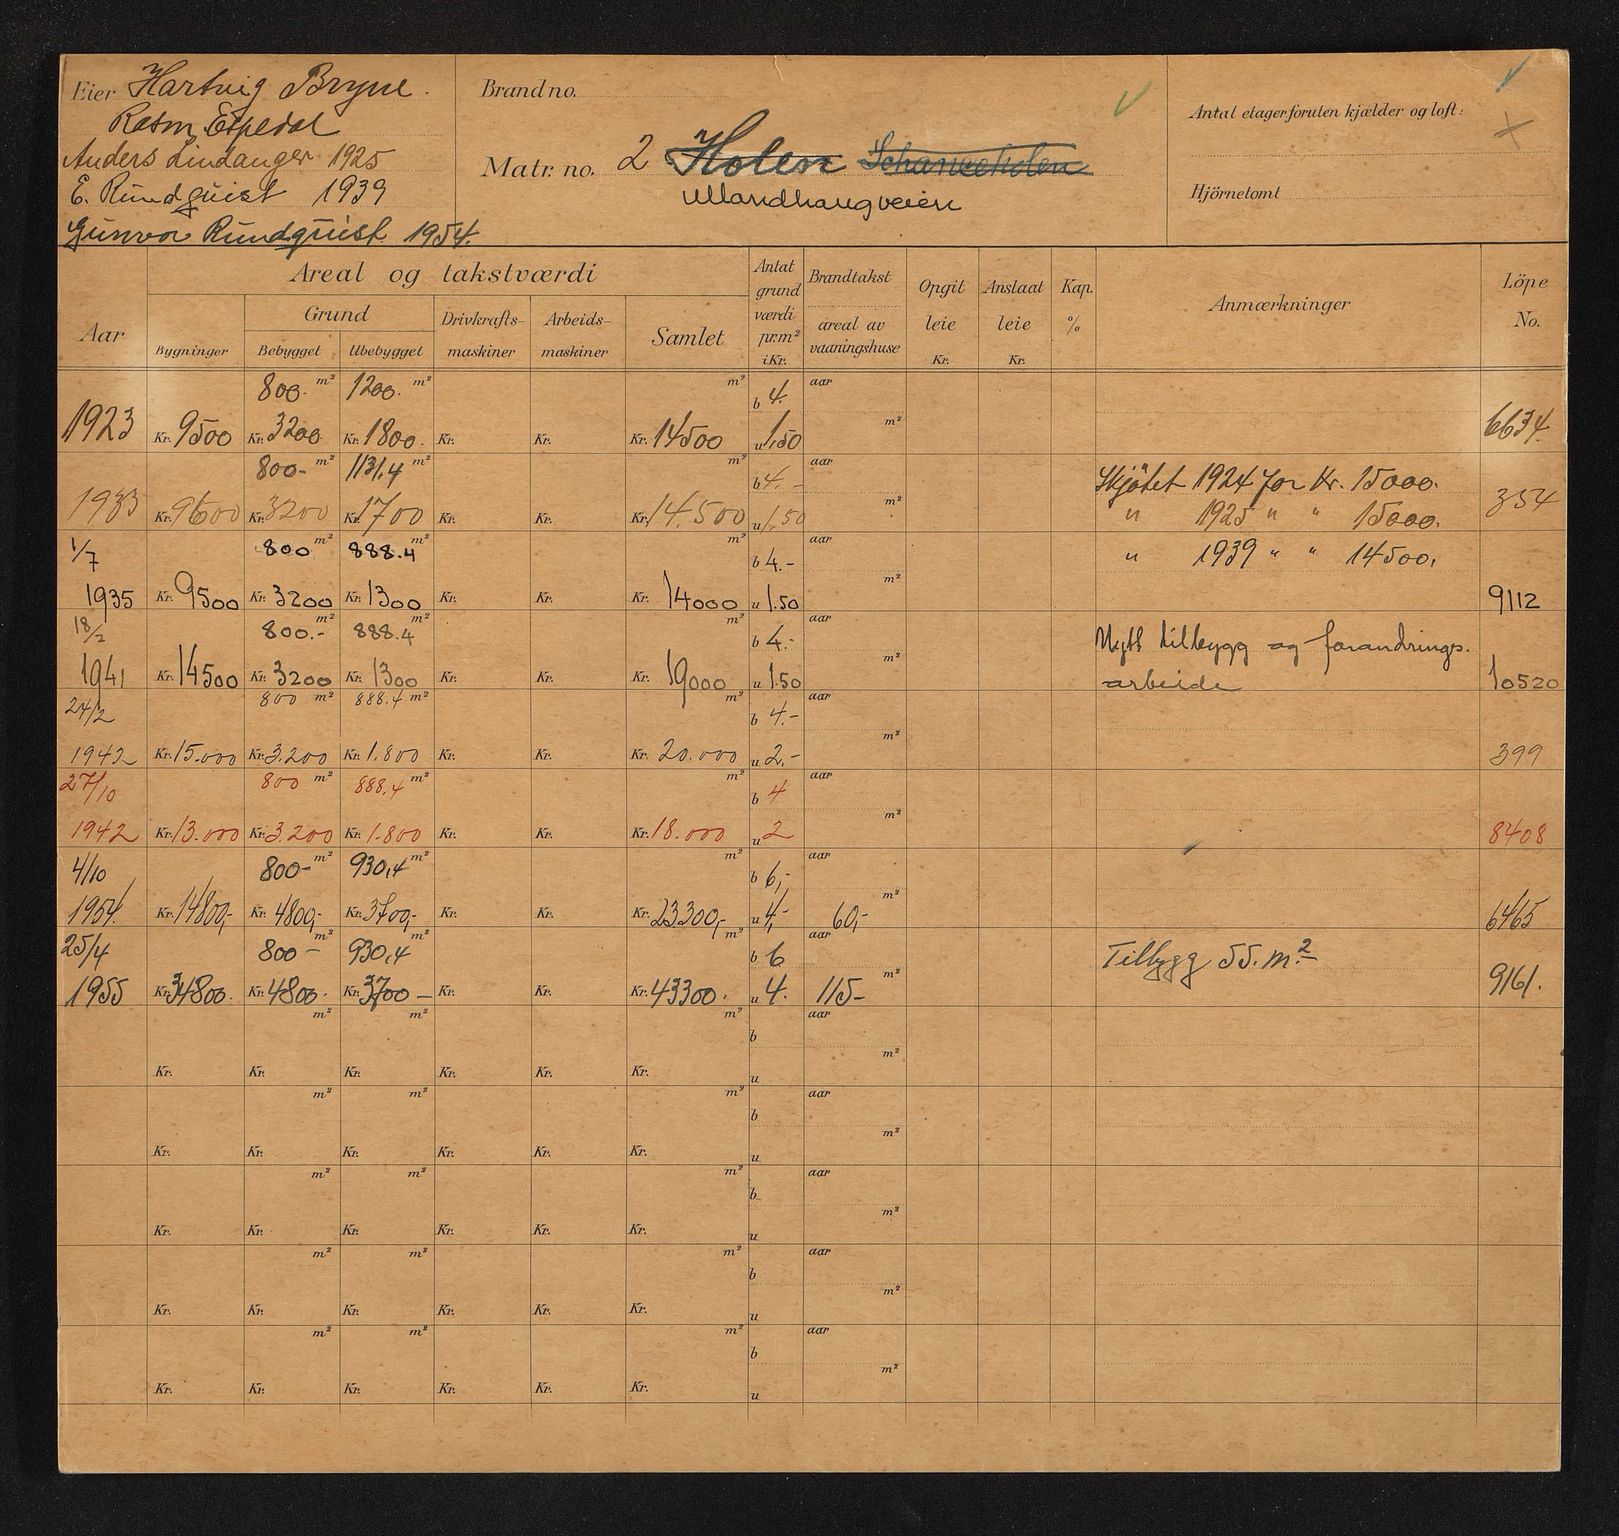 Eier Hartvig Bryne.
Rasm. Espedal
Anders Lindanger 1925
E. Rundquist 1939
Gunvor Rundquist 1954.
Brandno.
Matr. no. 2 Holen Schanceholen
Ullandhaugveien
Antal etager foruten kjælder og loft:
Hjörnetomt
Aar
Areal og takstværdi
Grund
Bygninger Bebygget Ubebygget
Drivkrafts-maskiner
Arbeids-maskiner
Samlet
Antat grundværdi pr.m² i Kr.
Brandtakst
areal av vaaningshuse
Opgit leie Kr.
Anslaat leie Kr.
Kap. %
Anmærkninger
Löpe No.
800. m² 1200. m² m² b 4. aar
1923 Kr. 9500 Kr. 3200 Kr. 1800. Kr. Kr. Kr. 14500 u 1,50 m² 6634.
800- m² 1131,4 m² m² b 4.- aar Skjötet 1924 for Kr. 15000.
1933 Kr. 9600 Kr. 3200 Kr. 1700 Kr. Kr. Kr. 14.500 u 1.50 m² " 1925 " " 15000. 354
1/7 800 m² 888.4 m² m² b 4.- aar " 1939 " " 14500.
1935 Kr. 9500 Kr. 3200 Kr. 1300 Kr. Kr. Kr. 14000 u 1.50 m² 9112
18/2 800.- m² 888.4 m² m² b 4.- aar Nytt tilbygg og forandrings-
1941 Kr. 14500 Kr. 3200 Kr. 1300 Kr. Kr. Kr. 19000 u 1.50 m² arbeide 10520
24/2 800 m² 888.4 m² m² b 4.- aar
1942 Kr. 15.000 Kr. 3.200 Kr. 1.800 Kr. Kr. Kr. 20.000 u 2.- m² 399
27/10 800 m² 888.4 m² m² b 4 aar
1942 Kr. 13.000 Kr. 3.200 Kr. 1.800 Kr. Kr. Kr. 18.000 u 2 m² 8408
4/10 800- m² 930,4 m² m² b 6,- aar
1954. Kr. 14800,- Kr. 4800,- Kr. 3700,- Kr. Kr. Kr. 23300,- u 4,- 60,- m² 6465
25/4 800- m² 930,4 m² m² b 6 aar Tilbygg 55. m.²
1955 Kr. 34800. Kr. 4800. Kr. 3700- Kr. Kr. Kr. 43300. u 4. 115- m² 9161.
m² m² m² b aar
Kr. Kr. Kr. Kr. Kr. Kr. u m²
m² m² m² b aar
Kr. Kr. Kr. Kr. Kr. Kr. u m²
m² m² m² b aar
Kr. Kr. Kr. Kr. Kr. Kr. u m²
m² m² m² b aar
Kr. Kr. Kr. Kr. Kr. Kr. u m²
m² m² m² b aar
Kr. Kr. Kr. Kr. Kr. Kr. u m²